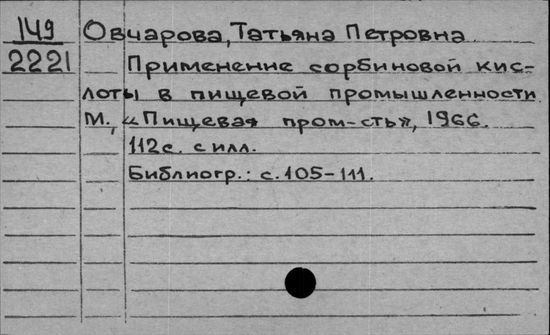 149 Овчарова, Татьяна Петровна
2221 Применение сорбиновой кис-
лоты в пищевой промышленности
М., «Пищевая пром-сть», 1966.
112с. с илл.
Библиогр.: с.105-111.